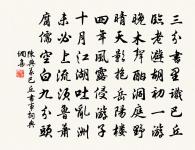 三分書里識巴丘
臨老避胡初一游
晚木聲酣洞庭野
晴天影抱岳陽樓
四年風露侵游子
十月江湖吐亂洲
未必上流須魯肅
腐儒空白九分頭
陳與義巴丘書事詞典
網喜